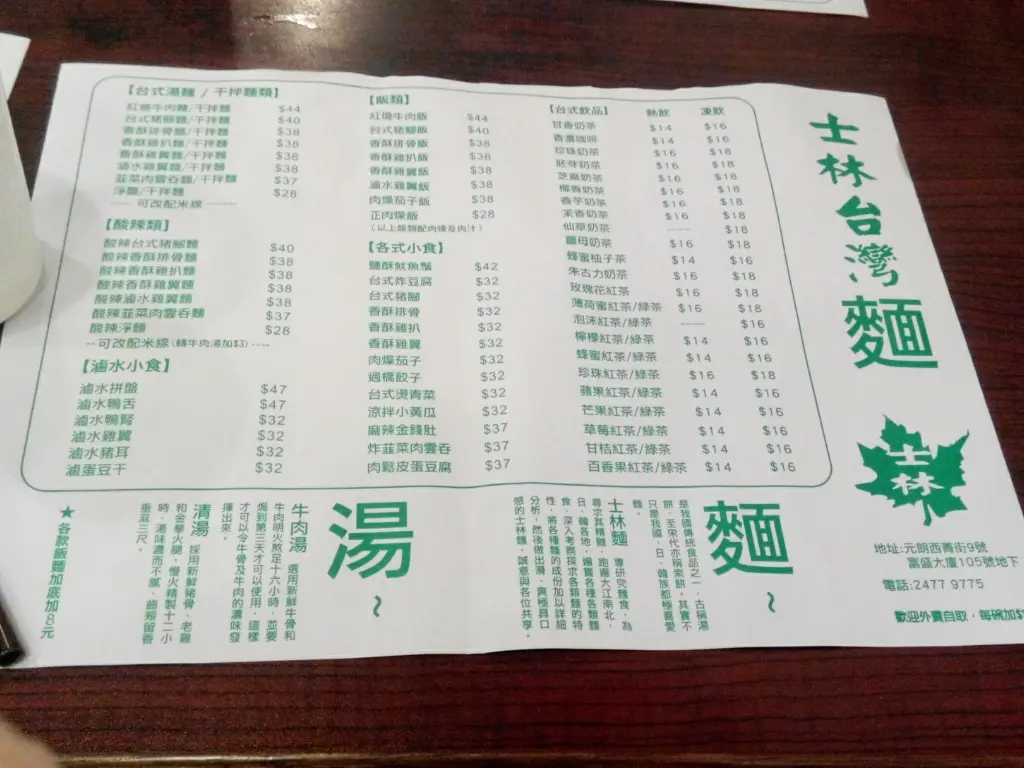 【台式湯麵 / 干拌麵類】
紅燒牛肉麵/干拌麵 $44
台式豬腳麵/干拌麵 $40
香酥排骨麵/干拌麵 $38
香酥雞扒麵/干拌麵 $38
香酥雞翼麵/干拌麵 $38
滷水雞翼麵/干拌麵 $38
韮菜肉雲吞麵/干拌麵 $37
淨麵/干拌麵 $28
---- 可改配米線 ------
【酸辣類】
酸辣台式豬腳麵 $40
酸辣香酥排骨麵 $38
酸辣香酥雞扒麵 $38
酸辣香酥雞翼麵 $38
酸辣滷水雞翼麵 $38
酸辣韮菜肉雲吞麵 $37
酸辣淨麵 $28
--可改配米線(轉牛肉湯加$3)----
【滷水小食】
滷水拼盤 $47
滷水鴨舌 $47
滷水鴨腎 $32
滷水雞翼 $32
滷水豬耳 $32
滷蛋豆干 $32
【飯類】
紅燒牛肉飯 $44
台式豬腳飯 $40
香酥排骨飯 $38
香酥雞扒飯 $38
香酥雞翼飯 $38
滷水雞翼飯 $38
肉燥茄子飯 $38
正肉燥飯 $28
(以上飯類配肉燥及肉汁)
【各式小食】
鹽酥魷魚鬚 $42
台式炸豆腐 $32
台式豬腳 $32
香酥排骨 $32
香酥雞扒 $32
香酥雞翼 $32
肉燥茄子 $32
過橋餃子 $32
台式燙青菜 $32
涼拌小黃瓜 $32
麻辣金錢肚 $37
炸韮菜肉雲吞 $37
肉鬆皮蛋豆腐 $37
【台式飲品】 熱飲 凍飲
甘香奶茶 $14 $16
香濃咖啡 $14 $16
珍珠奶茶 $16 $18
胚芽奶茶 $16 $18
芝麻奶茶 $16 $18
椰香奶茶 $16 $18
香芋奶茶 $16 $18
茉香奶茶 $16 $18
仙草奶茶 ---- $18
薑母奶茶 $16 $18
蜂蜜柚子茶 $16 $18
朱古力奶茶 $16 $18
玫瑰花紅茶 $16 $18
薄荷蜜紅茶/綠茶 $16 $18
泡沫紅茶/綠茶 ---- $16
檸檬紅茶/綠茶 $14 $16
蜂蜜紅茶/綠茶 $14 $16
珍珠紅茶/綠茶 $16 $18
蘋果紅茶/綠茶 $14 $16
芒果紅茶/綠茶 $14 $16
草莓紅茶/綠茶 $14 $16
甘桔紅茶/綠茶 $14 $16
百香果紅茶/綠茶 $14 $16
士林台灣麵
士林
地址:元朗西菁街9號
富盛大廈105號地下
電話:2477 9775
歡迎外賣自取，每碗加$
麵~
是我國傳統食品之一，古稱湯
餅，至宋代亦稱索餅，其實不
只是我國，日、韓族都極喜愛
麵。
士林麵 專研究麵食，為
尋求其精麵，跑遍大江南北，
日、韓各地，遍嘗各種各類麵
食，深入考察探求各類麵的特
性，將各種麵的成份加以詳細
分析，然後做出滑、爽極具口
感的士林麵，誠意與各位共享。
湯~
牛肉湯 選用新鮮牛骨和
牛肉明火熬足十六小時，並要
焗到第三天才可以使用，這樣
才可以令牛骨及牛肉的濃味發
揮出來。
清湯 採用新鮮豬骨、老雞
和金華火腿，慢火精製十二小
時，湯味濃而不膩，齒頰留香
垂涎三尺。
★各款飯麵加底加8元